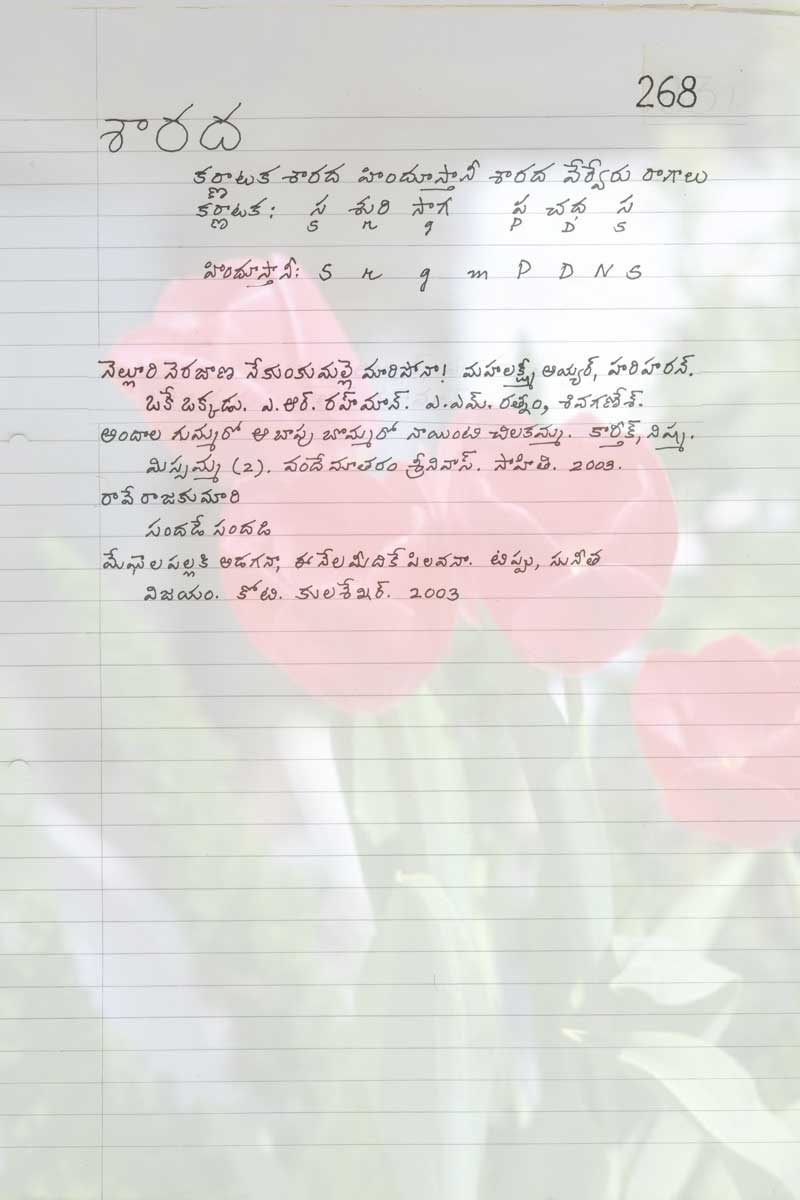 268
శారద
కర్ణాటక శారద హిందూస్తానీ శారద వేర్వేరు రాగాలు
కర్ణాటక: స శురి సాగ ప చద స
S r g P D S
హిందూస్తానీ: S r g m P D N S
నెల్లూరి నెరజాణ నేకుంకుమల్లె మారిపోనా! మహలక్ష్మీ అయ్యర్, హరిహరన్.
ఒకే ఒక్కడు. ఎ.ఆర్. రహ్మాన్. ఎ.ఎమ్. రత్నం, శివగణేశ్.
అందాల గుమ్మరో ఆ బాపు బొమ్మరో నాయింటి చిలకమ్మ. కార్తీక్, నిష్మ.
మిస్సమ్మ (2). వందేమాతరం శ్రీనివాస్. సాహితి. 2003.
రావే రాజకుమారి
సందడే సందడి
మేఘాల పల్లకి అడగనా, ఈ నేలమీదికే పిలవనా. టిప్పు, సునీత
విజయం. కోటి. కులశేఖర్. 2003